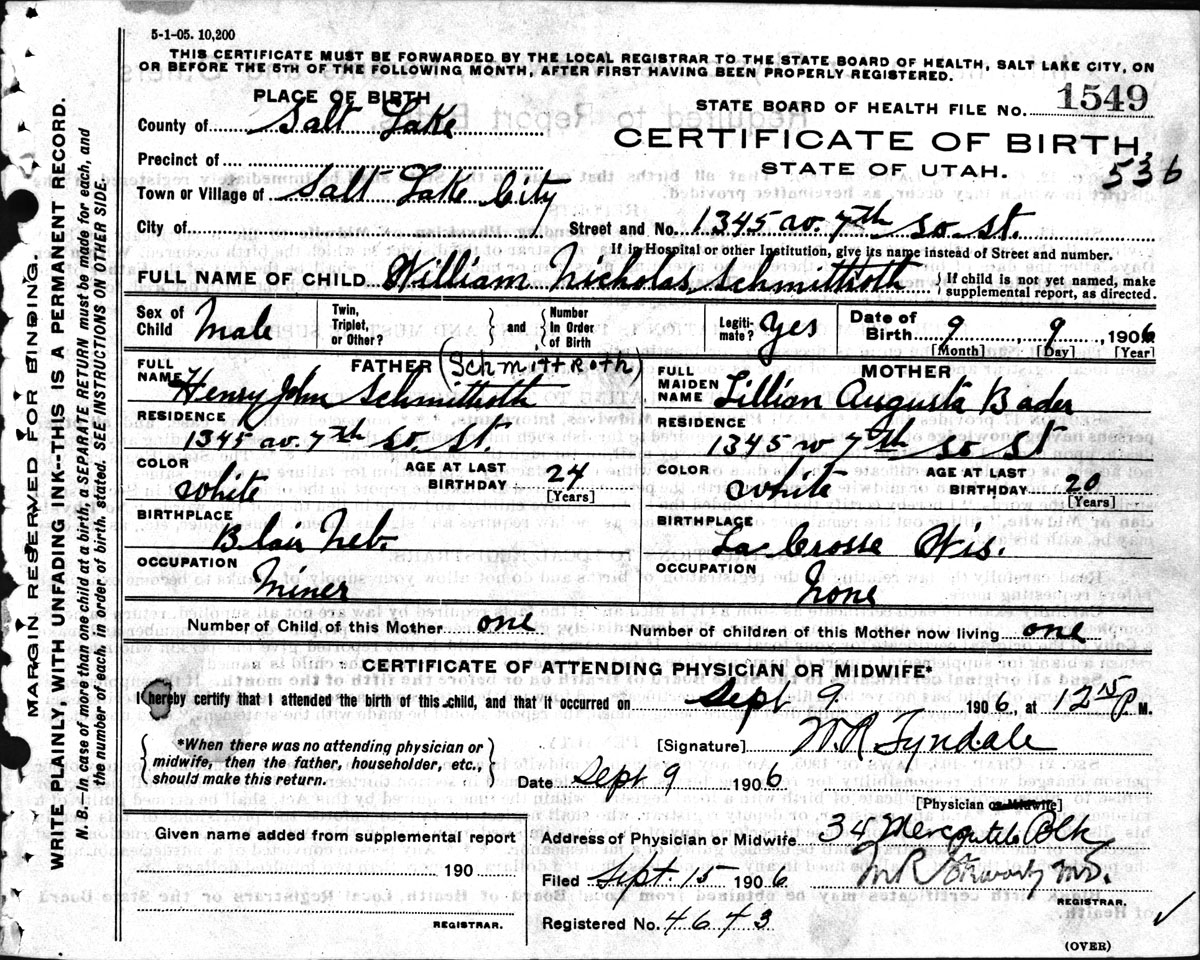 5-1-05. 10,200
THIS CERTIFICATE MUST BE FORWARDED BY THE LOCAL REGISTRAR TO THE STATE BOARD OF HEALTH, SALT LAKE CITY, ON
OR BEFORE THE 5TH OF THE FOLLOWING MONTH, AFTER FIRST HAVING BEEN PROPERLY REGISTERED.
PLACE OF BIRTH
STATE BOARD OF HEALTH FILE No. 1549
County of Salt Lake
CERTIFICATE OF BIRTH
Precinct of
STATE OF UTAH.
536
Town or Village of Salt Lake City
City of
Street and No. 1345 w. 7th So. St.
If in Hospital or other Institution, give its name instead of Street and number.
FULL NAME OF CHILD William Nicholas Schmittroth
{ If child is not yet named, make
supplemental report, as directed.
Sex of Child Male
Twin, Triplet, or Other? } and { Number In Order of Birth
Legiti-mate? Yes
Date of Birth 9 9, 1906
[Month] [Day] [Year]
FATHER (Schmittroth)
FULL NAME Henry John Schmittroth
RESIDENCE
1345 w. 7th So. St.
COLOR white
AGE AT LAST BIRTHDAY 24
[Years]
BIRTHPLACE
Blair Neb.
OCCUPATION
Miner
MOTHER
FULL MAIDEN NAME Lillian Augusta Bader
RESIDENCE
1345 w 7th So St
COLOR white
AGE AT LAST BIRTHDAY 20
[Years]
BIRTHPLACE
La Crosse Wis.
OCCUPATION
None
Number of Child of this Mother one
Number of children of this Mother now living one
CERTIFICATE OF ATTENDING PHYSICIAN OR MIDWIFE*
I hereby certify that I attended the birth of this child, and that it occurred on Sept 9 1906, at 12 15 P. M.
{ *When there was no attending physician or
midwife, then the father, householder, etc.,
should make this return. }
[Signature] W. R. Tyndale
Date Sept 9 1906
[Physician or Midwife]
Given name added from supplemental report
190
REGISTRAR.
Address of Physician or Midwife 34 Mercantile Blk
Filed Sept 15 1906
M R M.D.
REGISTRAR.
Registered No. 4643
(OVER)
MARGIN RESERVED FOR BINDING.
WRITE PLAINLY, WITH UNFADING INK--THIS IS A PERMANENT RECORD.
N. B. In case of more than one child at a birth, a SEPARATE RETURN must be made for each, and
the number of each, in order of birth, stated. SEE INSTRUCTIONS ON OTHER SIDE.